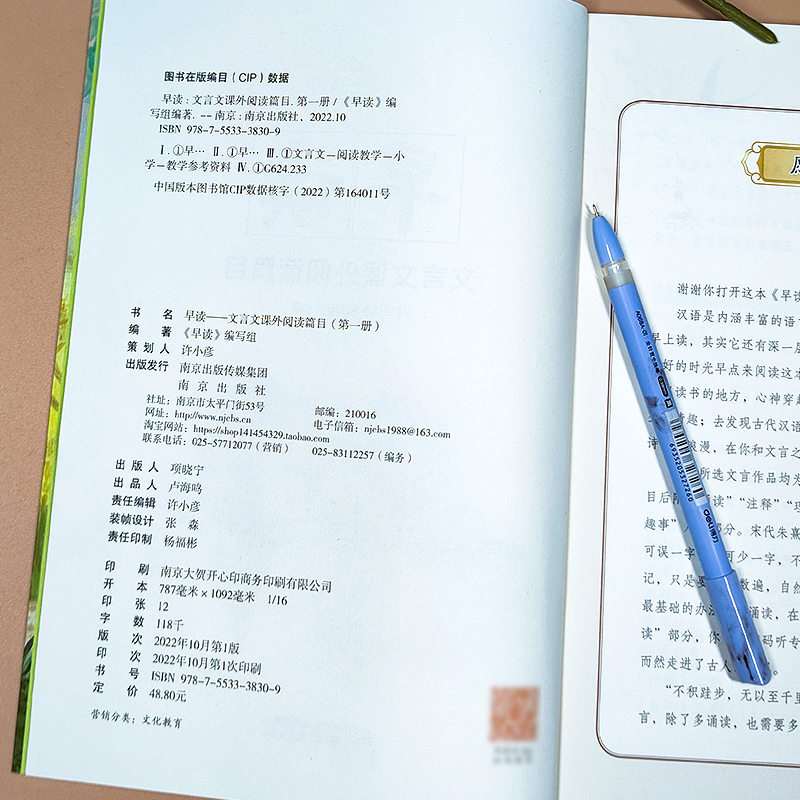 图书在版编目（CIP）数据
早读：文言文课外阅读篇目. 第一册 /《早读》编
写组编著. -- 南京：南京出版社，2022.10
ISBN 978-7-5533-3830-9
Ⅰ.①早… Ⅱ.①早… Ⅲ.①文言文—阅读教学—小
学—教学参考资料 Ⅳ.①G624.233
中国版本图书馆CIP数据核字（2022）第164011号
书 名 早读——文言文课外阅读篇目（第一册）
编 著 《早读》编写组
策 划 人 许小彦
出版发行 南京出版传媒集团
南 京 出 版 社
社址：南京市太平门街53号 邮编：210016
网址：http://www.njcbs.cn 电子信箱：njcbs1988@163.com
淘宝网站：https://shop141454329.taobao.com
联系电话：025-57712077（营销） 025-83112257（编务）
出 版 人 项晓宁
出 品 人 卢海鸣
责任编辑 许小彦
装帧设计 张 森
责任印制 杨福彬
印 刷 南京大贺开心印商务印刷有限公司
开 本 787毫米×1092毫米 1/16
印 张 12
字 数 118千
版 次 2022年10月第1版
印 次 2022年10月第1次印刷
书 号 ISBN 978-7-5533-3830-9
定 价 48.80元
营销分类：文化教育
谢谢你打开这本《早读
汉语是内涵丰富的语
早上读，其实它还有深一层
好的时光早点来阅读这本
读书的地方，心神穿越
趣；去发现古代汉语
浪漫，在你和文言之
所选文言作品均为
目后附 读”“注释”“理
趣事” 部分。宋代朱熹
可误一字 可少一字，不
记，只是要 数遍，自然
最基础的办法 诵读，在
读”部分，你 码听专
而然走进了古人
“不积跬步，无以至千里
言，除了多诵读，也需要多
6935205327260
deli得力